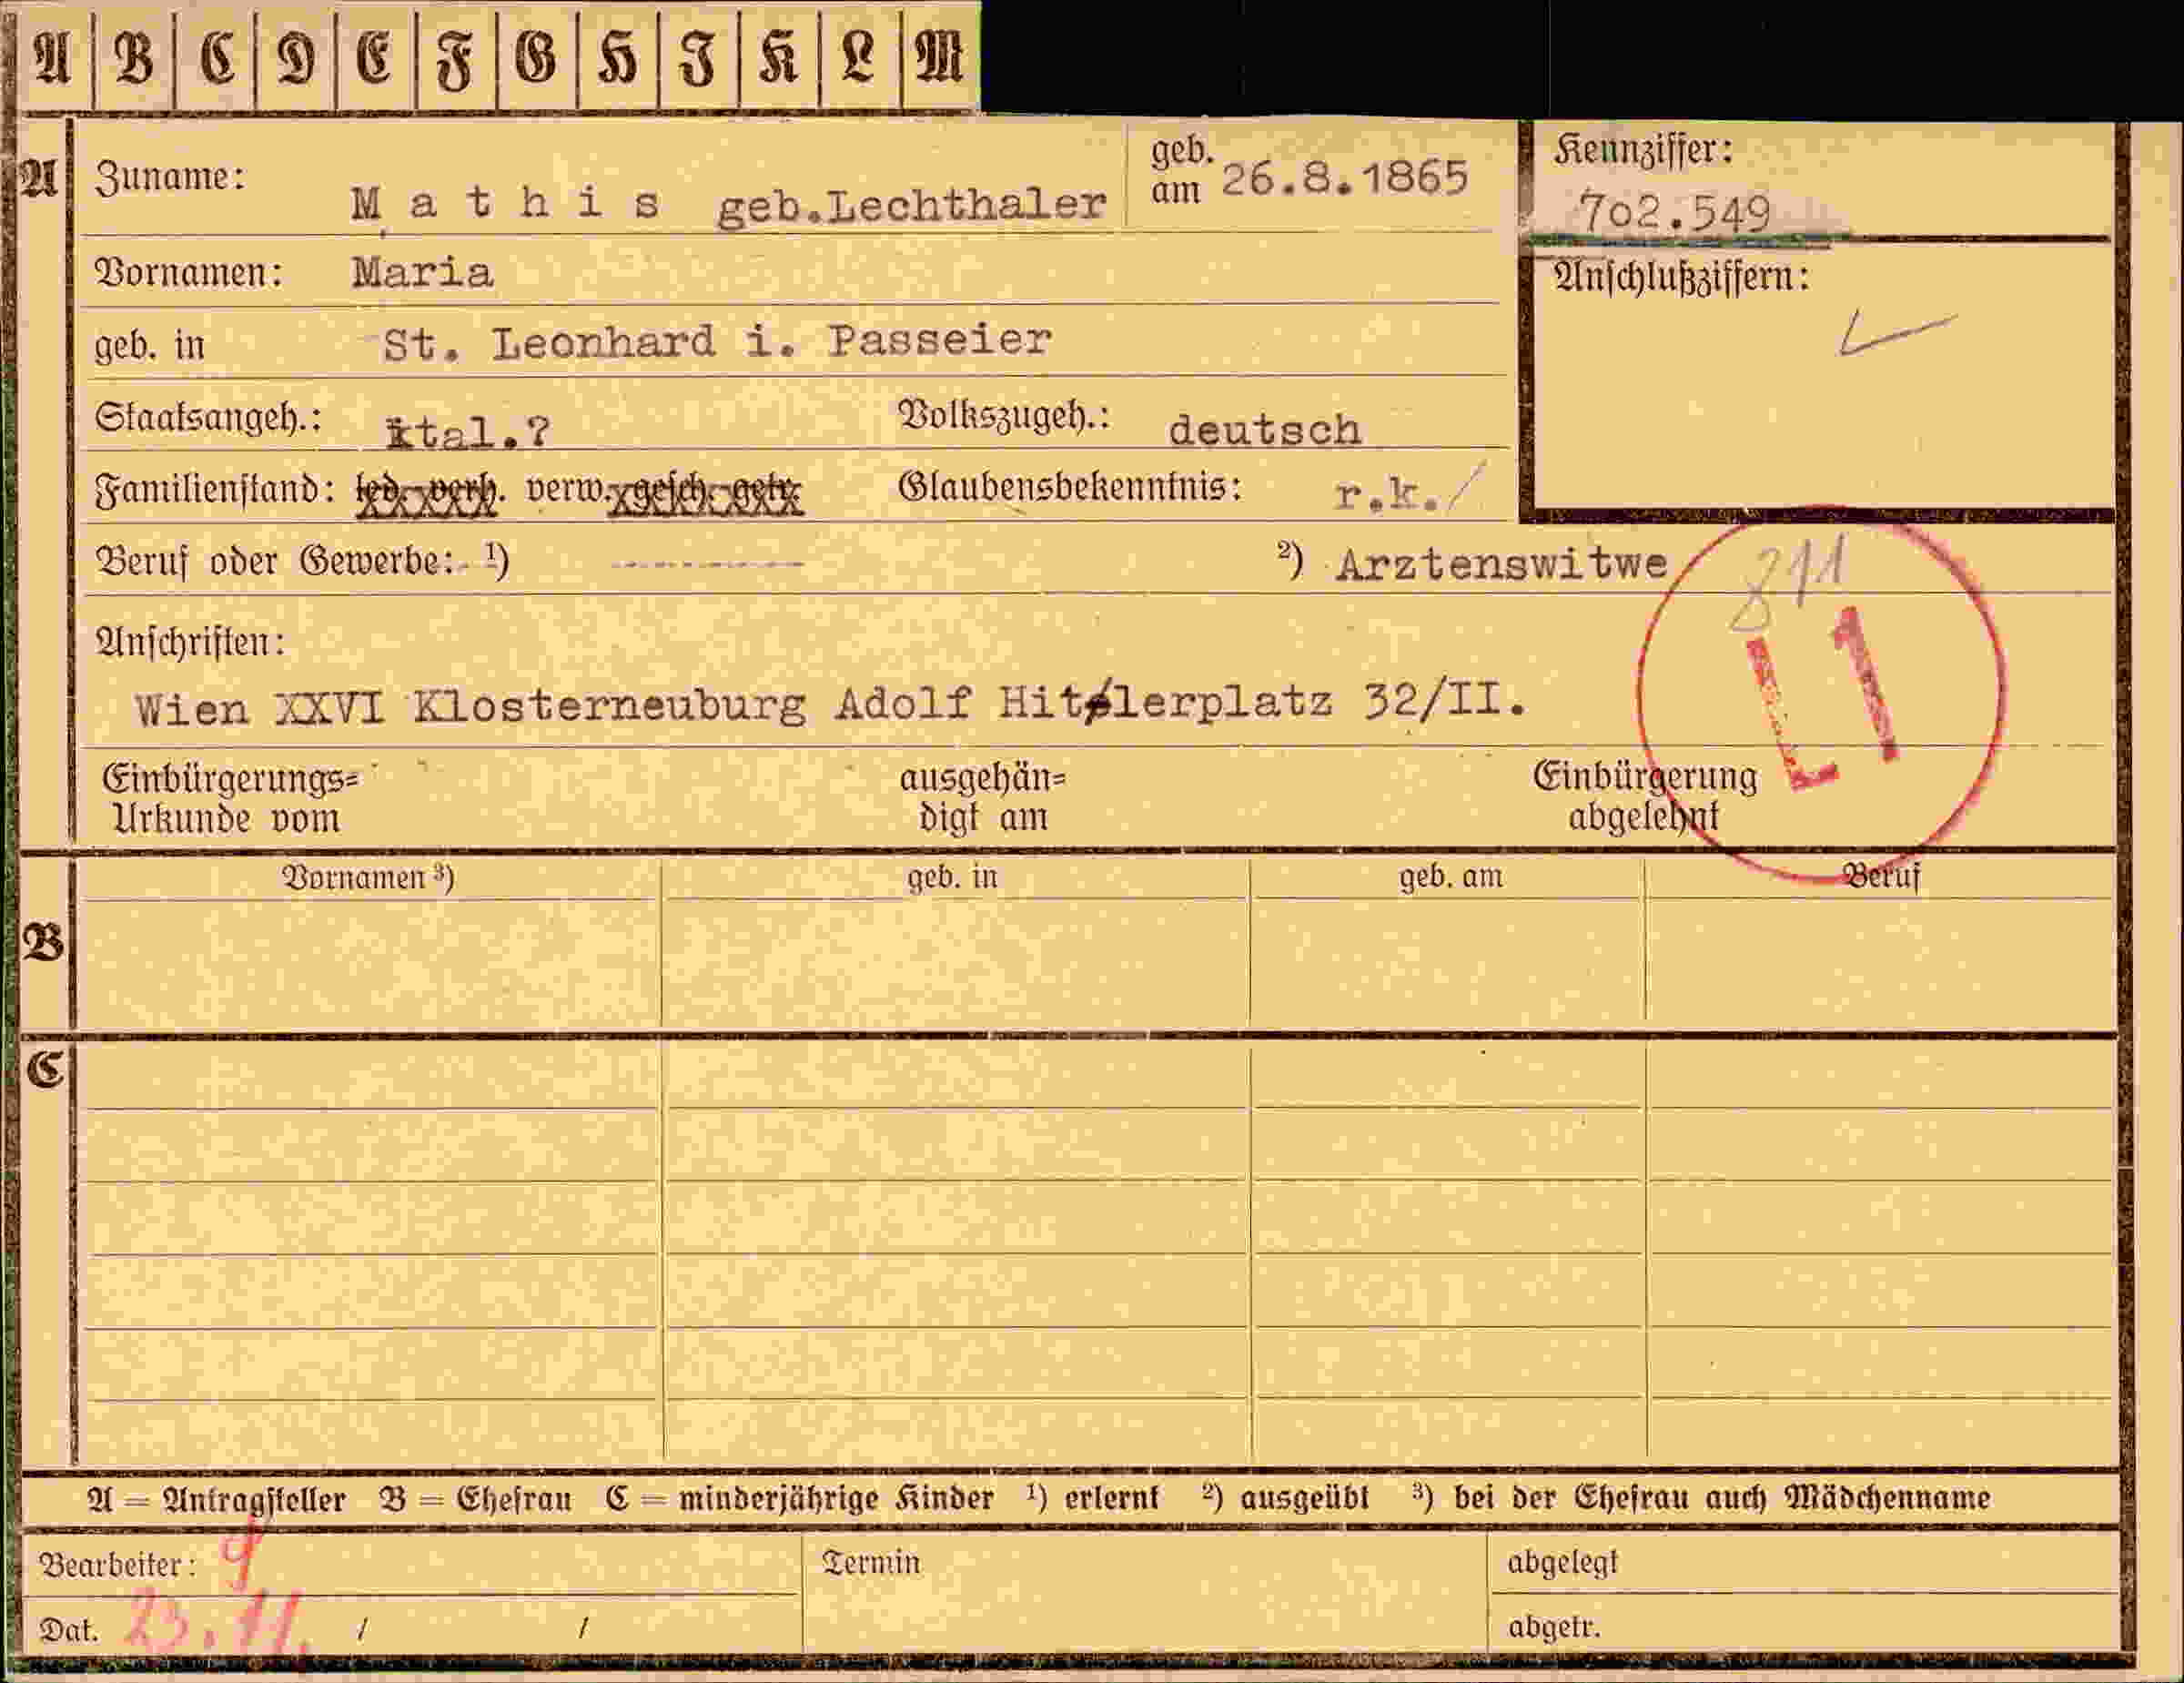 A B C D E F G H I K L M
A Zuname: Mathis geb.Lechthaler geb. am 26.8.1865
Kennziffer:
702.549
Vornamen: Maria
Anschlußziffern:
geb. in St. Leonhard i. Passeier
Staatsangeh.: ital.? Volkszugeh.: deutsch
Familienstand: led. verh. verw. gesch. getr. Glaubensbekenntnis: r.k./
Beruf oder Gewerbe: 1) ---------- 2) Arztenswitwe
811
L1
Anschriften:
Wien XXVI Klosterneuburg Adolf Hitlerplatz 32/II.
Einbürgerungs= ausgehän= Einbürgerung
Urkunde vom digt am abgelehnt
Vornamen 3) geb. in geb. am Beruf
B
C
A = Antragsteller B = Ehefrau C = minderjährige Kinder 1) erlernt 2) ausgeübt 3) bei der Ehefrau auch Mädchenname
Bearbeiter: Termin abgelegt
Dat. 23.11. / / abgetr.